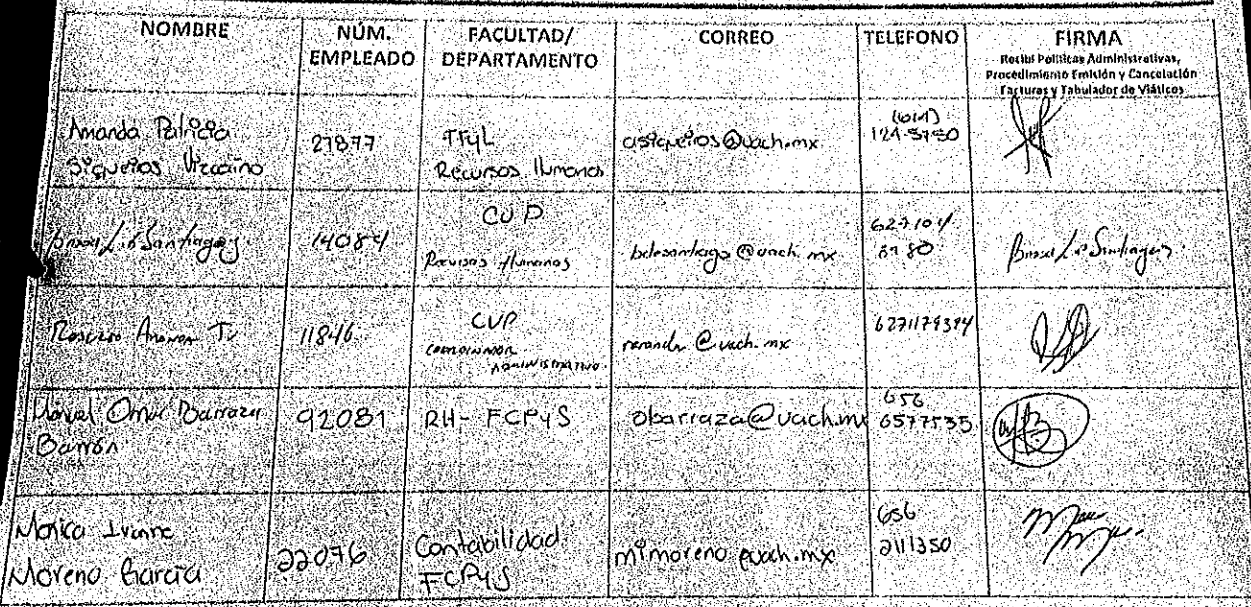 NOMBRE
NÚM.
EMPLEADO
FACULTAD/
DEPARTAMENTO
CORREO
TELEFONO
FIRMA
Recibí Políticas Administrativas,
Procedimiento Emisión y Cancelación
Facturas y Tabulador de Viáticos
Amanda Patricia
Siqueiros Vizcaino
27877
FFyL
Recursos Humanos
asiqueiros@uach.mx
(614)
Santiago
14084
CUP
Recursos Humanos
@uach.mx
627104
11846
CUP
COORDINADOR
ADMINISTRATIVO
@uach.mx
Omar Barraza
Barrón
92081
RH- FCPyS
obarraza@uach.mx
656
6577535
Monica Ivonne
Moreno García
22076
Contabilidad
FCPyS
mimoreno@uach.mx
656
2111350